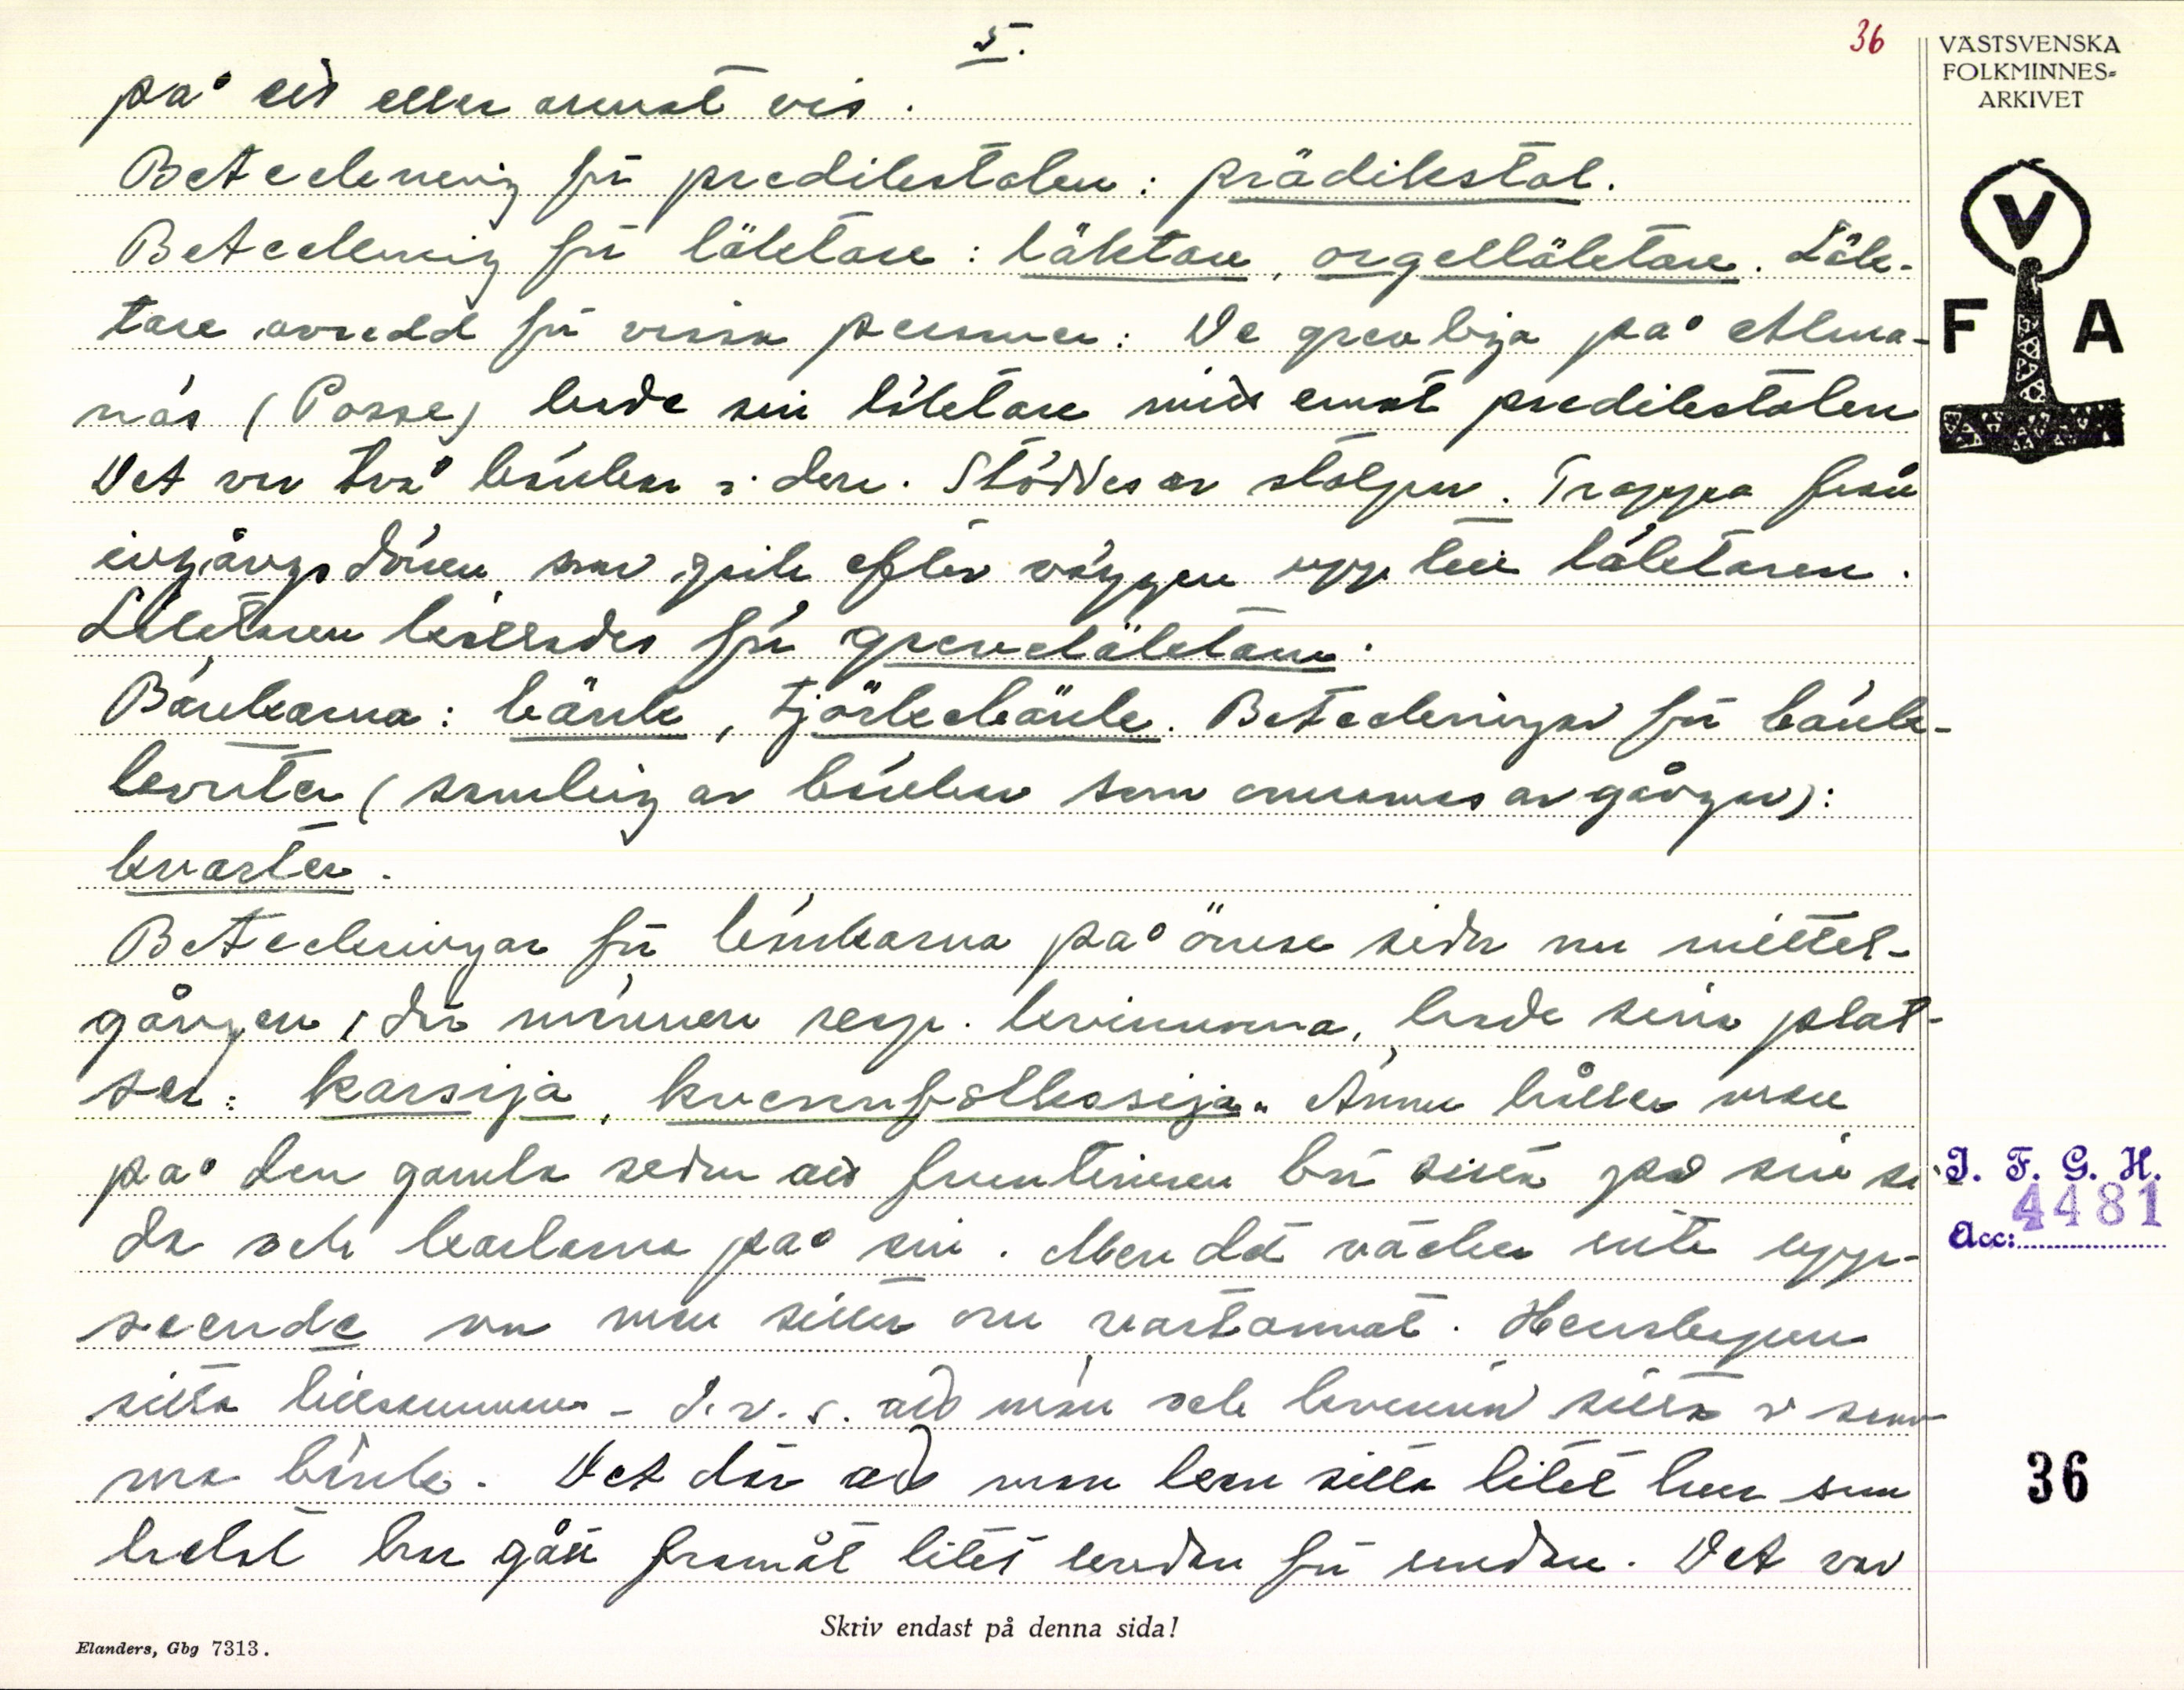 5.
36
på ett eller annat vis.
Beteckning för predikstolen: prädikstol.
Beteckning för läktare: läktare, orgelläktare. Läk-
tare avsedd för vissa personer: De grevliga på Almna-
näs (Posse) hade sin läktare mitt emot predikstolen
Det var två bänkar i den. Stöddes av stolpar. Trappa från
ingångsdörren som gick efter väggen upp till läktaren.
Läktaren kallades för greveläktare.
Bänkarna: bänk, tjörkebänk. Beteckningar för bänk-
kvarter (samling av bänkar som omramas av gångar):
kvarter.
Beteckningar för bänkarna på ömse sidor om mittel-
gången, där männen resp. kvinnorna, hade sina plat-
ser: karsija, kvennfolkssija. Ännu håller man
på den gamla seden att fruntimren bör sitta på sin si-
da och karlarna på sin. Men det väcker inte upp-
seende om man sitter om vartannat. Herrskapen
sitta tillsammans - d.v.s. att man och kvinna sitta i sam-
ma bänk. Det där att man kan sitta litet hur som
helst har gått framåt litet undan för undan. Det var
Skriv endast på denna sida!
Elanders, Gbg 7313.
VÄSTSVENSKA
FOLKMINNES-
ARKIVET
V
F A
I. F. G. H.
4481
Acc:
36